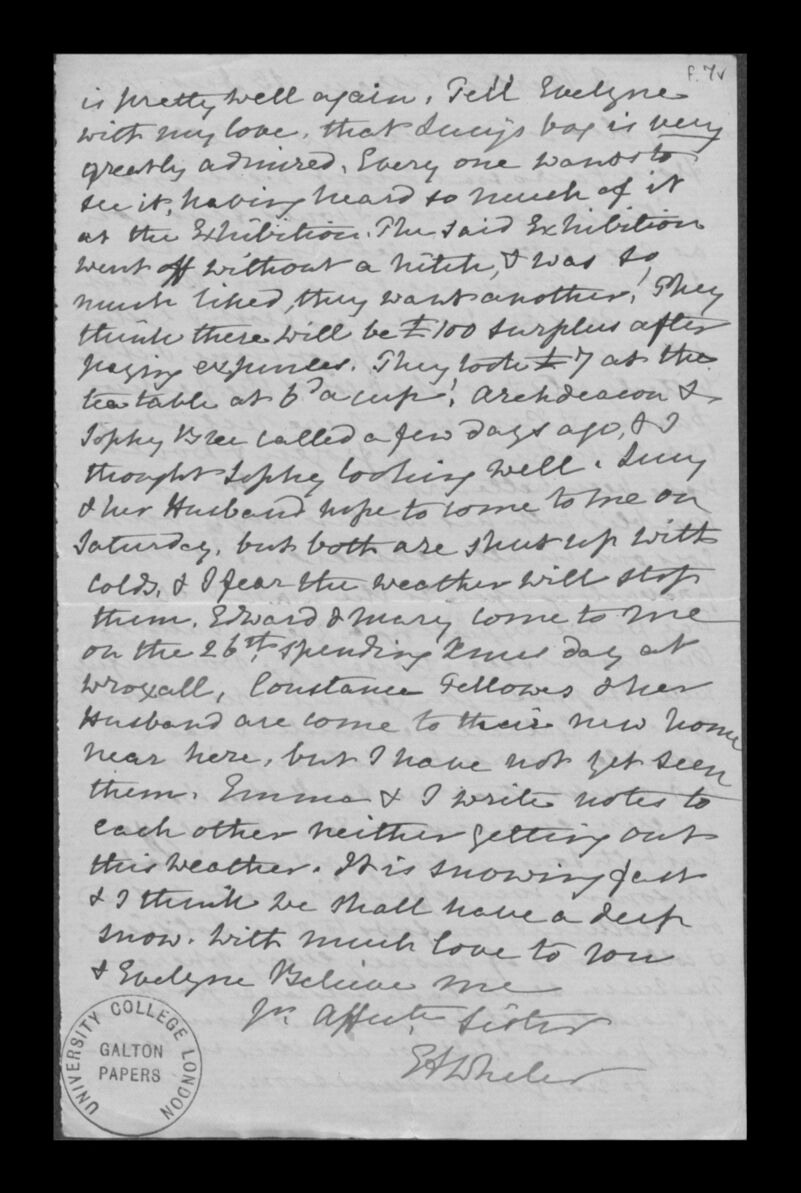 f. 7v
is pretty well again. Tell Evelyne
with my love, that Lucy's box is very
greatly admired. Every one wants to
see it, having heard so much of it
at the Exhibition. The said Exhibition
went off without a hitch, & was so
much liked, they want another! They
think there will be £100 surplus after
paying expenses. They took £7 at the
tea table at 6d a cup! Archdeacon &
Sophy Bree called a few days ago, & I
thought Sophy looking well. Lucy
& her Husband hope to come to me on
Saturday, but both are shut up with
colds, & I fear the weather will stop
them. Edward & Mary come to me
on the 26th. spending Xmas day at
Wroxall, Constance Fellowes & her
Husband are come to their new home
near here, but I have not yet seen
them. Emma & I write notes to
each other neither getting out
this weather. It is snowing fast
& I think we shall have a deep
snow. With much love to you
& Evelyne Believe me
Yr. Affecte. Sister
EAWheler
UNIVERSITY COLLEGE LONDON
GALTON
PAPERS